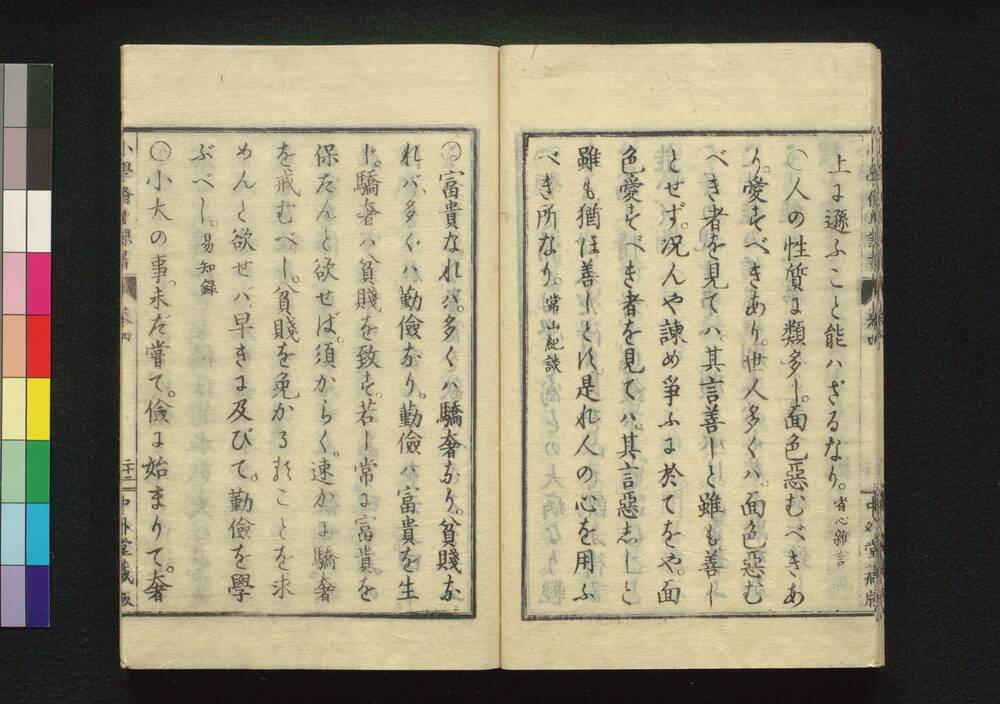 上に遜ふこと能ハざるなり。省心雜言
○人の性質に類多し。面色惡むべきあ
り。愛すべきあり。世人多くハ。面色惡む
べき者を見てハ。其言善しと雖も善し
とせず。况んや諫め爭ふに於てをや。面
色愛すべき者を見てハ。其言惡しと
雖も猶ほ善しとす。是れ人の心を用ふ
べき所なり。常山紀談
○富貴なれバ。多くハ驕奢なり。貧賤な
れバ。多くハ勤儉なり。勤儉ハ富貴を生
じ。驕奢ハ貧賤を致す。若し常に富貴を
保たんと欲せば。須からく。速かに驕奢
を戒むべし。貧賤を免かるることを求
めんと欲せバ。早きに及びて。勤儉を學
ぶべし。易知録
○小大の事。未だ嘗て。儉に始まりて。奢
卷四
二十二
中外堂藏版